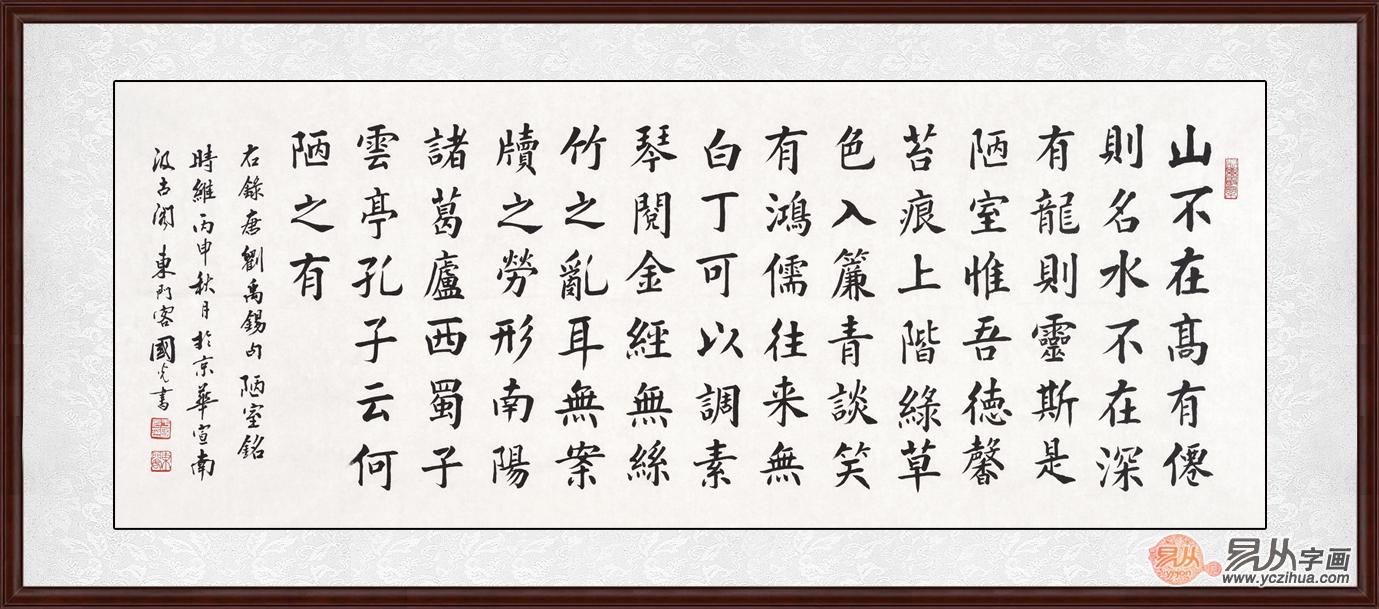 山不在高有僊
則名水不在深
有龍則靈斯是
陋室惟吾德馨
苔痕上階綠草
色入簾青談笑
有鴻儒往来無
白丁可以調素
琴閱金經無絲
竹之亂耳無案
牘之勞形南陽
諸葛廬西蜀子
雲亭孔子云何
陋之有
右錄唐劉禹錫句陋室銘
時維丙申秋月於京華宣南
汲古閣東門客國光書
易从
yigon
易从字画
www.yczihua.com